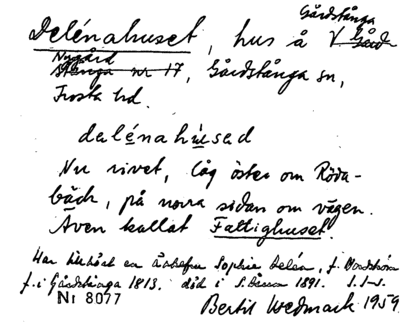 Gårdstånga
Delénahuset, hus å V Gård
Nygård
Stånga nr 17, Gårdstånga sn,
Frosta hd.
dalénahused
Nu rivet, låg öster om Röda-
bäck, på norra sidan om vägen.
Även kallat Fattighuset.
Har tillhört en Sophia Delén, f.
f. i Gårdstånga 1813. död i 1891.
Nr 8077 Bertil Wedmark 1959.